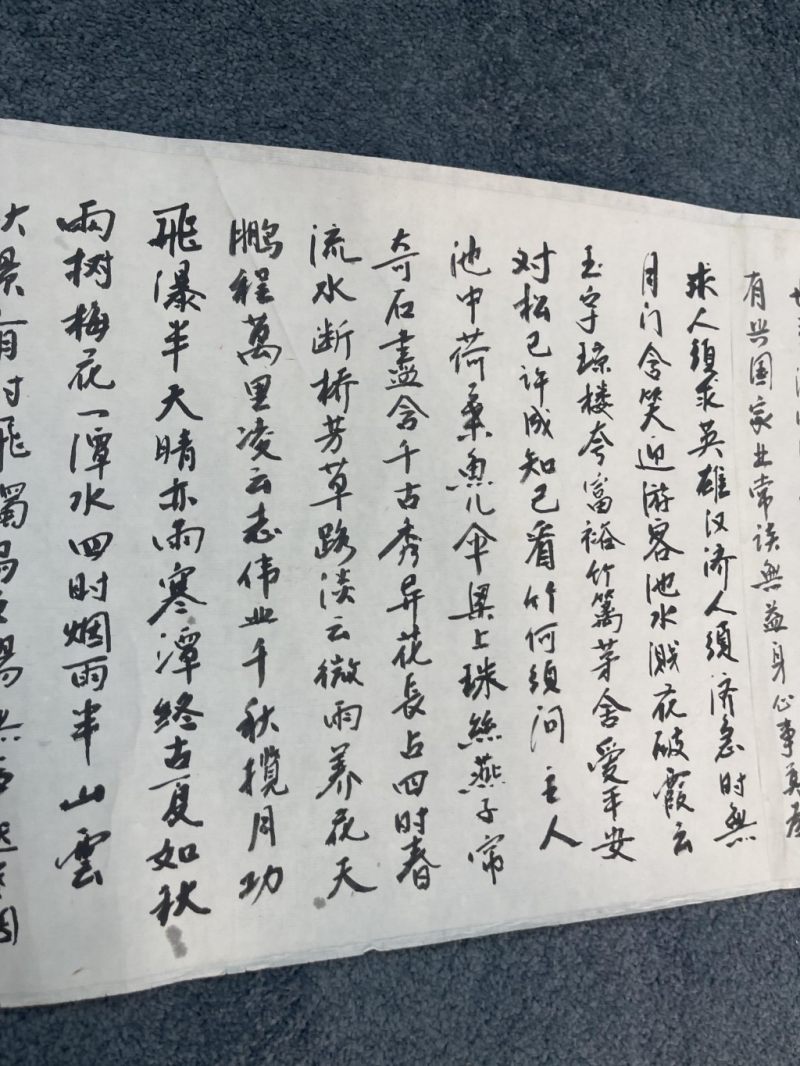 有兴国家业常谈无益身心事莫存
求人须求英雄汉济人须济急时無
月门含笑迎游客池水溅花破霞云
玉宇琼楼夸富裕竹篱茅舍爱平安
对松已许成知己看竹何须问主人
池中荷叶魚儿伞梁上珠絲燕子帘
奇石盡含千古秀异花長占四时春
流水断桥芳草路淡云微雨养花天
鹏程萬里凌云志伟业千秋揽月功
飛瀑半天晴亦雨寒潭終古夏如秋
兩树梅花一潭水四时烟雨半山雲
大景有时飛